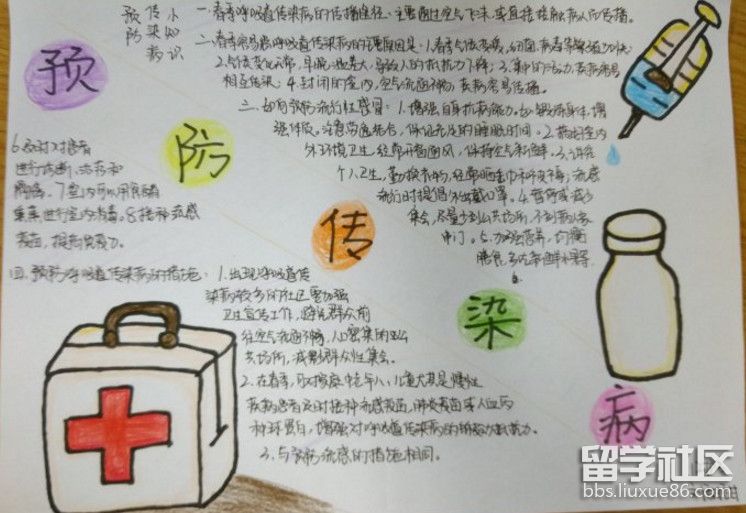 预 传 小
防 染 知
病 识
预
防
传
染
病
一.春季呼吸道传染病的传播途径:主要通过空气飞沫,或直接接触病人而传播。
二.春季容易患呼吸道传染病的主要原因是:1.春季气候变暖,细菌,病毒等繁殖加快;
2.气候变化不常,早晚温差大,导致人的抵抗力下降;3.集中的活动,疾病容易
相互传染;4.封闭的室内,空气流通不畅,疾病容易传播。
三.如何预防流行性感冒:1.增强自身抗病能力。加强锻炼身体,增
强体质。注意劳逸结合,保证充足的睡眠时间。2.搞好室内
外环境卫生,经常开窗通风,保持空气新鲜。3.讲究
个人卫生,勤换衣物,经常晒毛巾和衣被等;流感
流行时提倡外出戴口罩。4.暂停或减少
集会,尽量少到公共场所,不到病人家
串门。5.加强营养,均衡
膳食,多吃新鲜水果等
6.及时对患者
进行诊断,治疗和
隔离。7.室内可以用食醋
熏蒸进行室内消毒。8.接种流感
疫苗,提高免疫力。
四.预防呼吸道传染病的措施:1.出现呼吸道传
染病较多的社区要加强
卫生宣传工作,避免群众前
往空气流通不畅,人口密集的公
共场所,减少群众性集会。
2.在春季,
疾病患者及时接种流感疫苗,肺炎疫苗或人血丙
种球蛋白,增强对呼吸道传染病的
3.与预防流感的措施相同。
留学社区
bbs.liuxue86.com